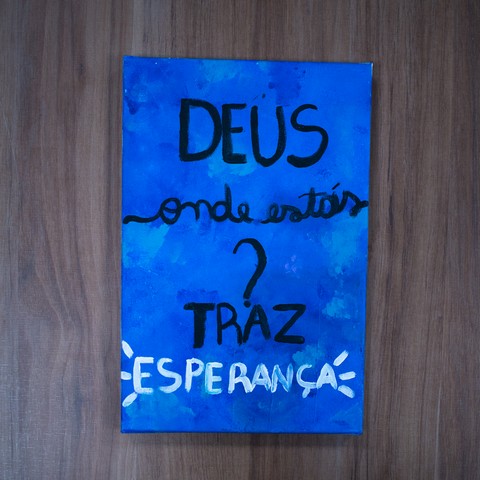 DEUS
onde estás
?
TRAZ
ESPERANÇA